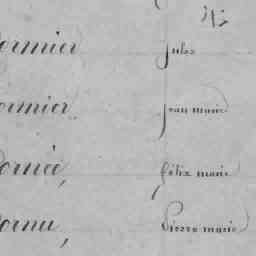 ormier Jules
ormier Jean marie
ornée, félix marie
ornu, Pierre marie